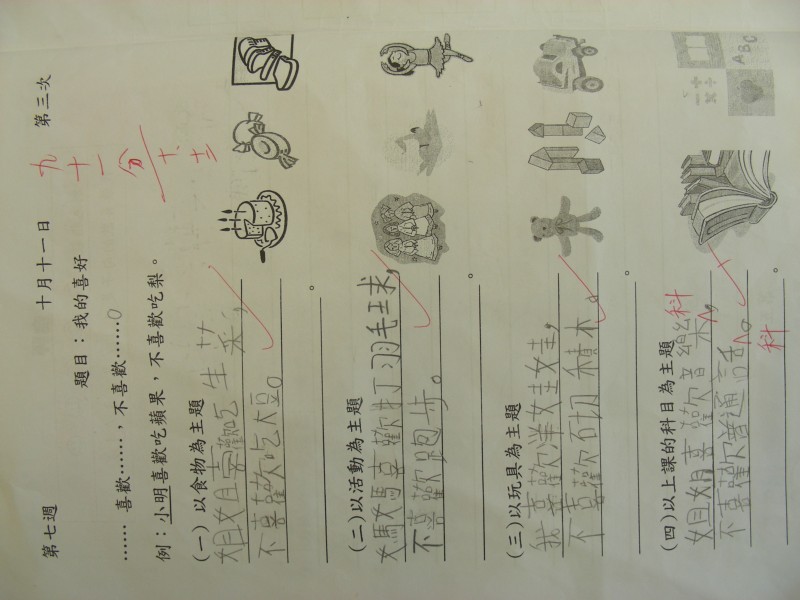 第七週　十月十一日　第三次
九十一分
題目：我的喜好
……喜歡……，不喜歡……。
例：小明喜歡吃蘋果，不喜歡吃梨。
(一)以食物為主題
姐姐喜歡吃生菜，
不喜歡吃大豆。
(二)以活動為主題
媽媽喜歡打羽毛球，
不喜歡跑步。
(三)以玩具為主題
我喜歡洋娃娃，
不喜歡積木。
(四)以上課的科目為主題
姐姐喜歡音樂科，
不喜歡普通話科。
ABC